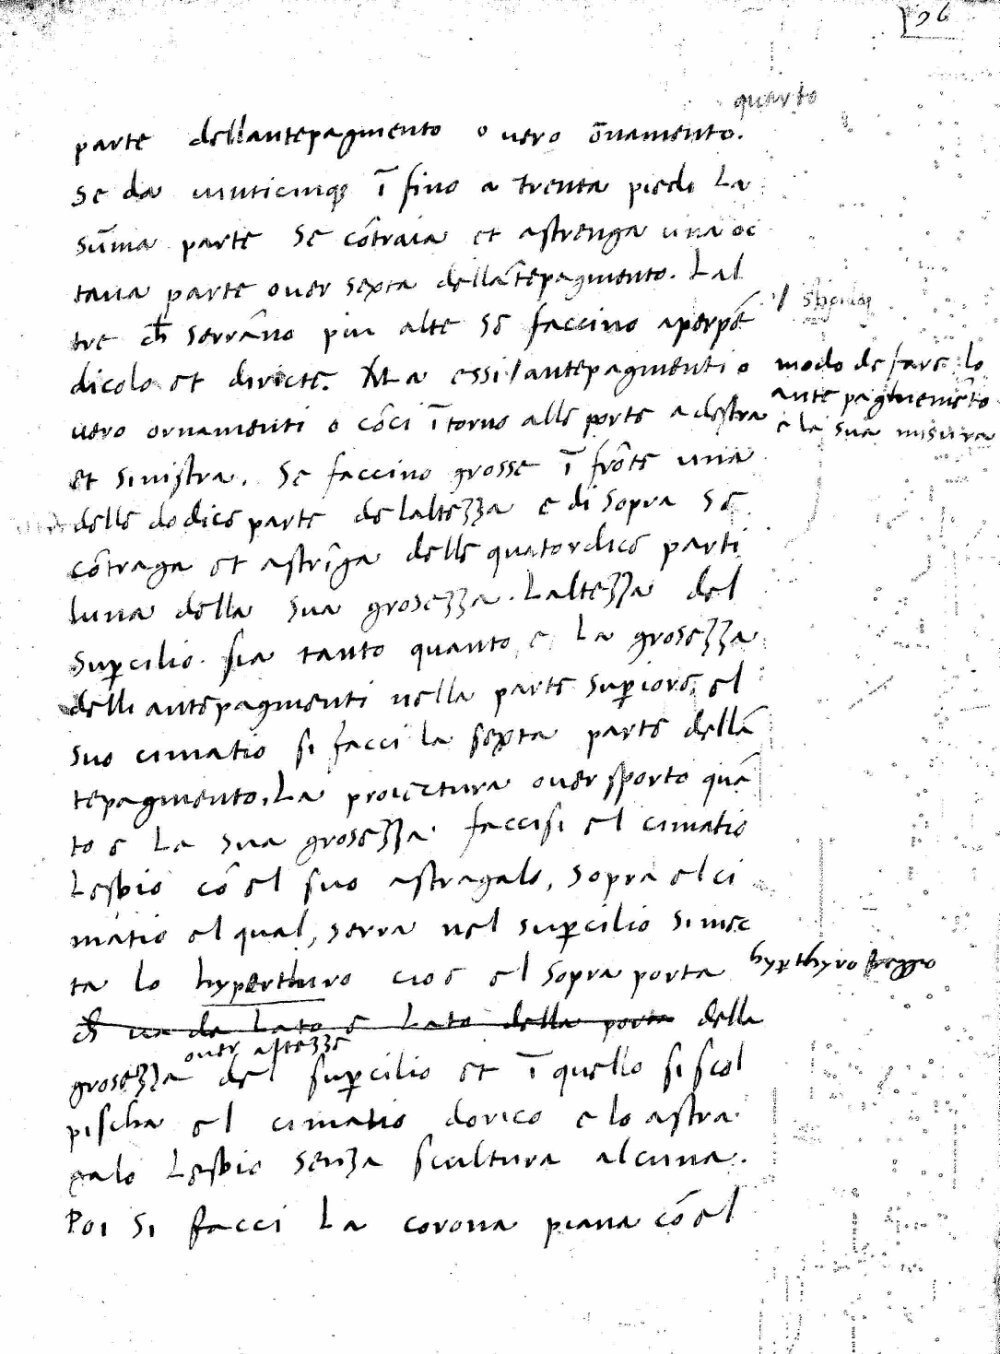 96
quarto
parte dellantepagmento o vero ōrnamento.
Se da vinticinq; ī fino a trenta piedi La
sūma parte se cōtraia et astrenga una oc
tava parte over sexta dellātepagmento. Lal
tre ch̄ serrāno piu alte se faccino aperpē
dicolo et directe. Ma essi / antepagmenti o
modo de fare lo
antepaghmenēto
e la sua misura
vero ornamenti o cōci ītorno alle porte a destra
et sinistra. Se faccino grosse ī frōte una
delle dodice parte de laltezza e di sopra se
cōtraga et astrīga delle quatordice parti
luna della sua grosezza. Laltezza del
supercilio. sia tanto quanto e La grosezza
delli antepagmenti nella parte superiore, el
suo cimatio si facci la sexta parte dellā
tepagmento. La proiectura over sporto quā
to e La sua grosezza. faccisi el cimatio
Lesbio cō el suo astragalo, sopra el ci
matio el qual, serra nel supercilio si mec
ta lo hyperthuro cioe el sopra porta
hyperthyro freggio
ch̄ va de Lato e Lato della porta della
over altezze
grosezza del supercilio et ī quello si scol
pischa el cimatio dorico e lo astra
galo Lesbio senza scultura alcuna.
Poi si facci La corona piana cō el